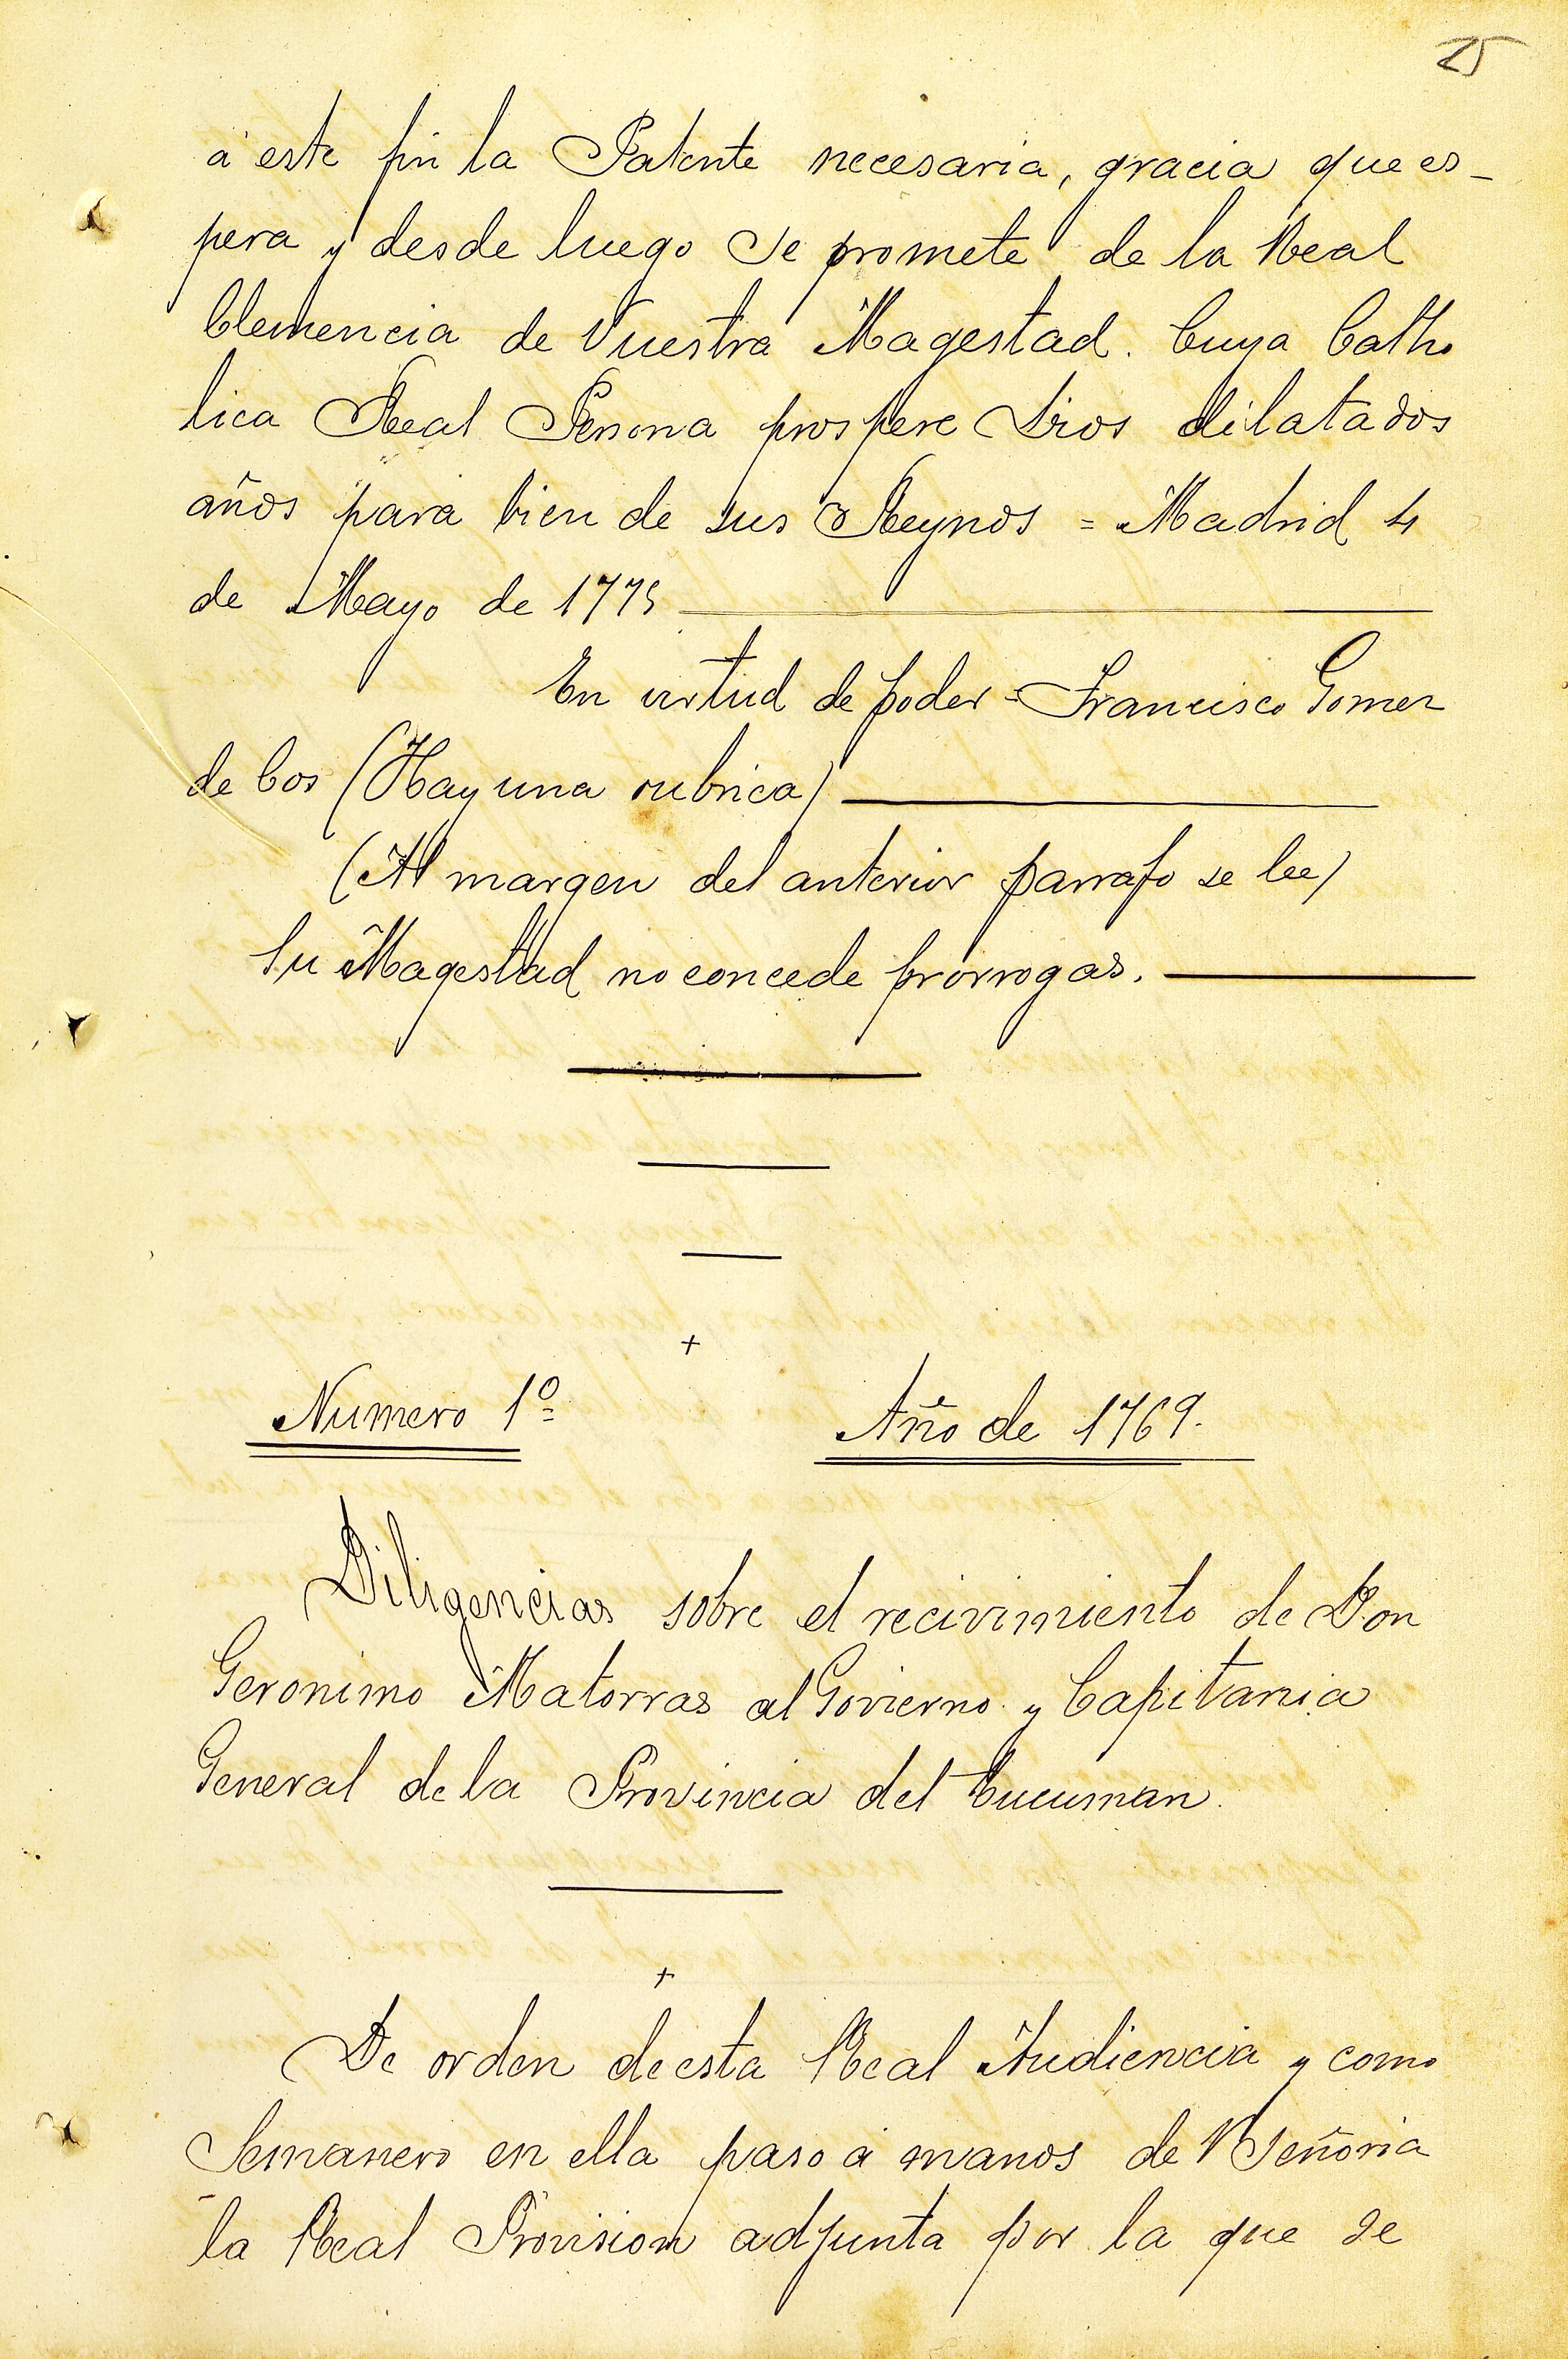 25
á este fin la Patente necesaria, gracia que es-
pera y desde luego se promete de la Real
Clemencia de Vuestra Magestad. Cuya Catho
lica Real Persona prospere Dios dilatados
años para bien de sus Reynos = Madrid 4
de Mayo de 1775
En virtud de poder = Francisco Gomez
de Cos (Hay una rubrica)
(Al margen del anterior parrafo se lee)
Su Magestad no concede prorrogas.
+
Numero 1º
Año de 1769.
Diligencias sobre el recivimiento de Don
Geronimo Matorras al Govierno y Capitania
General de la Provincia del Tucuman.
+
De orden de esta Real Audiencia y como
Semanero en ella paso á manos de V Señoria
la Real Provision adjunta por la que se